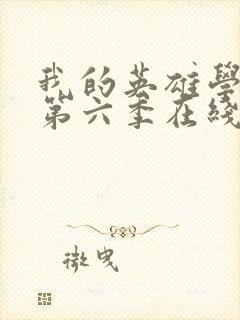 我的英雄學
第六季在綫
微曳